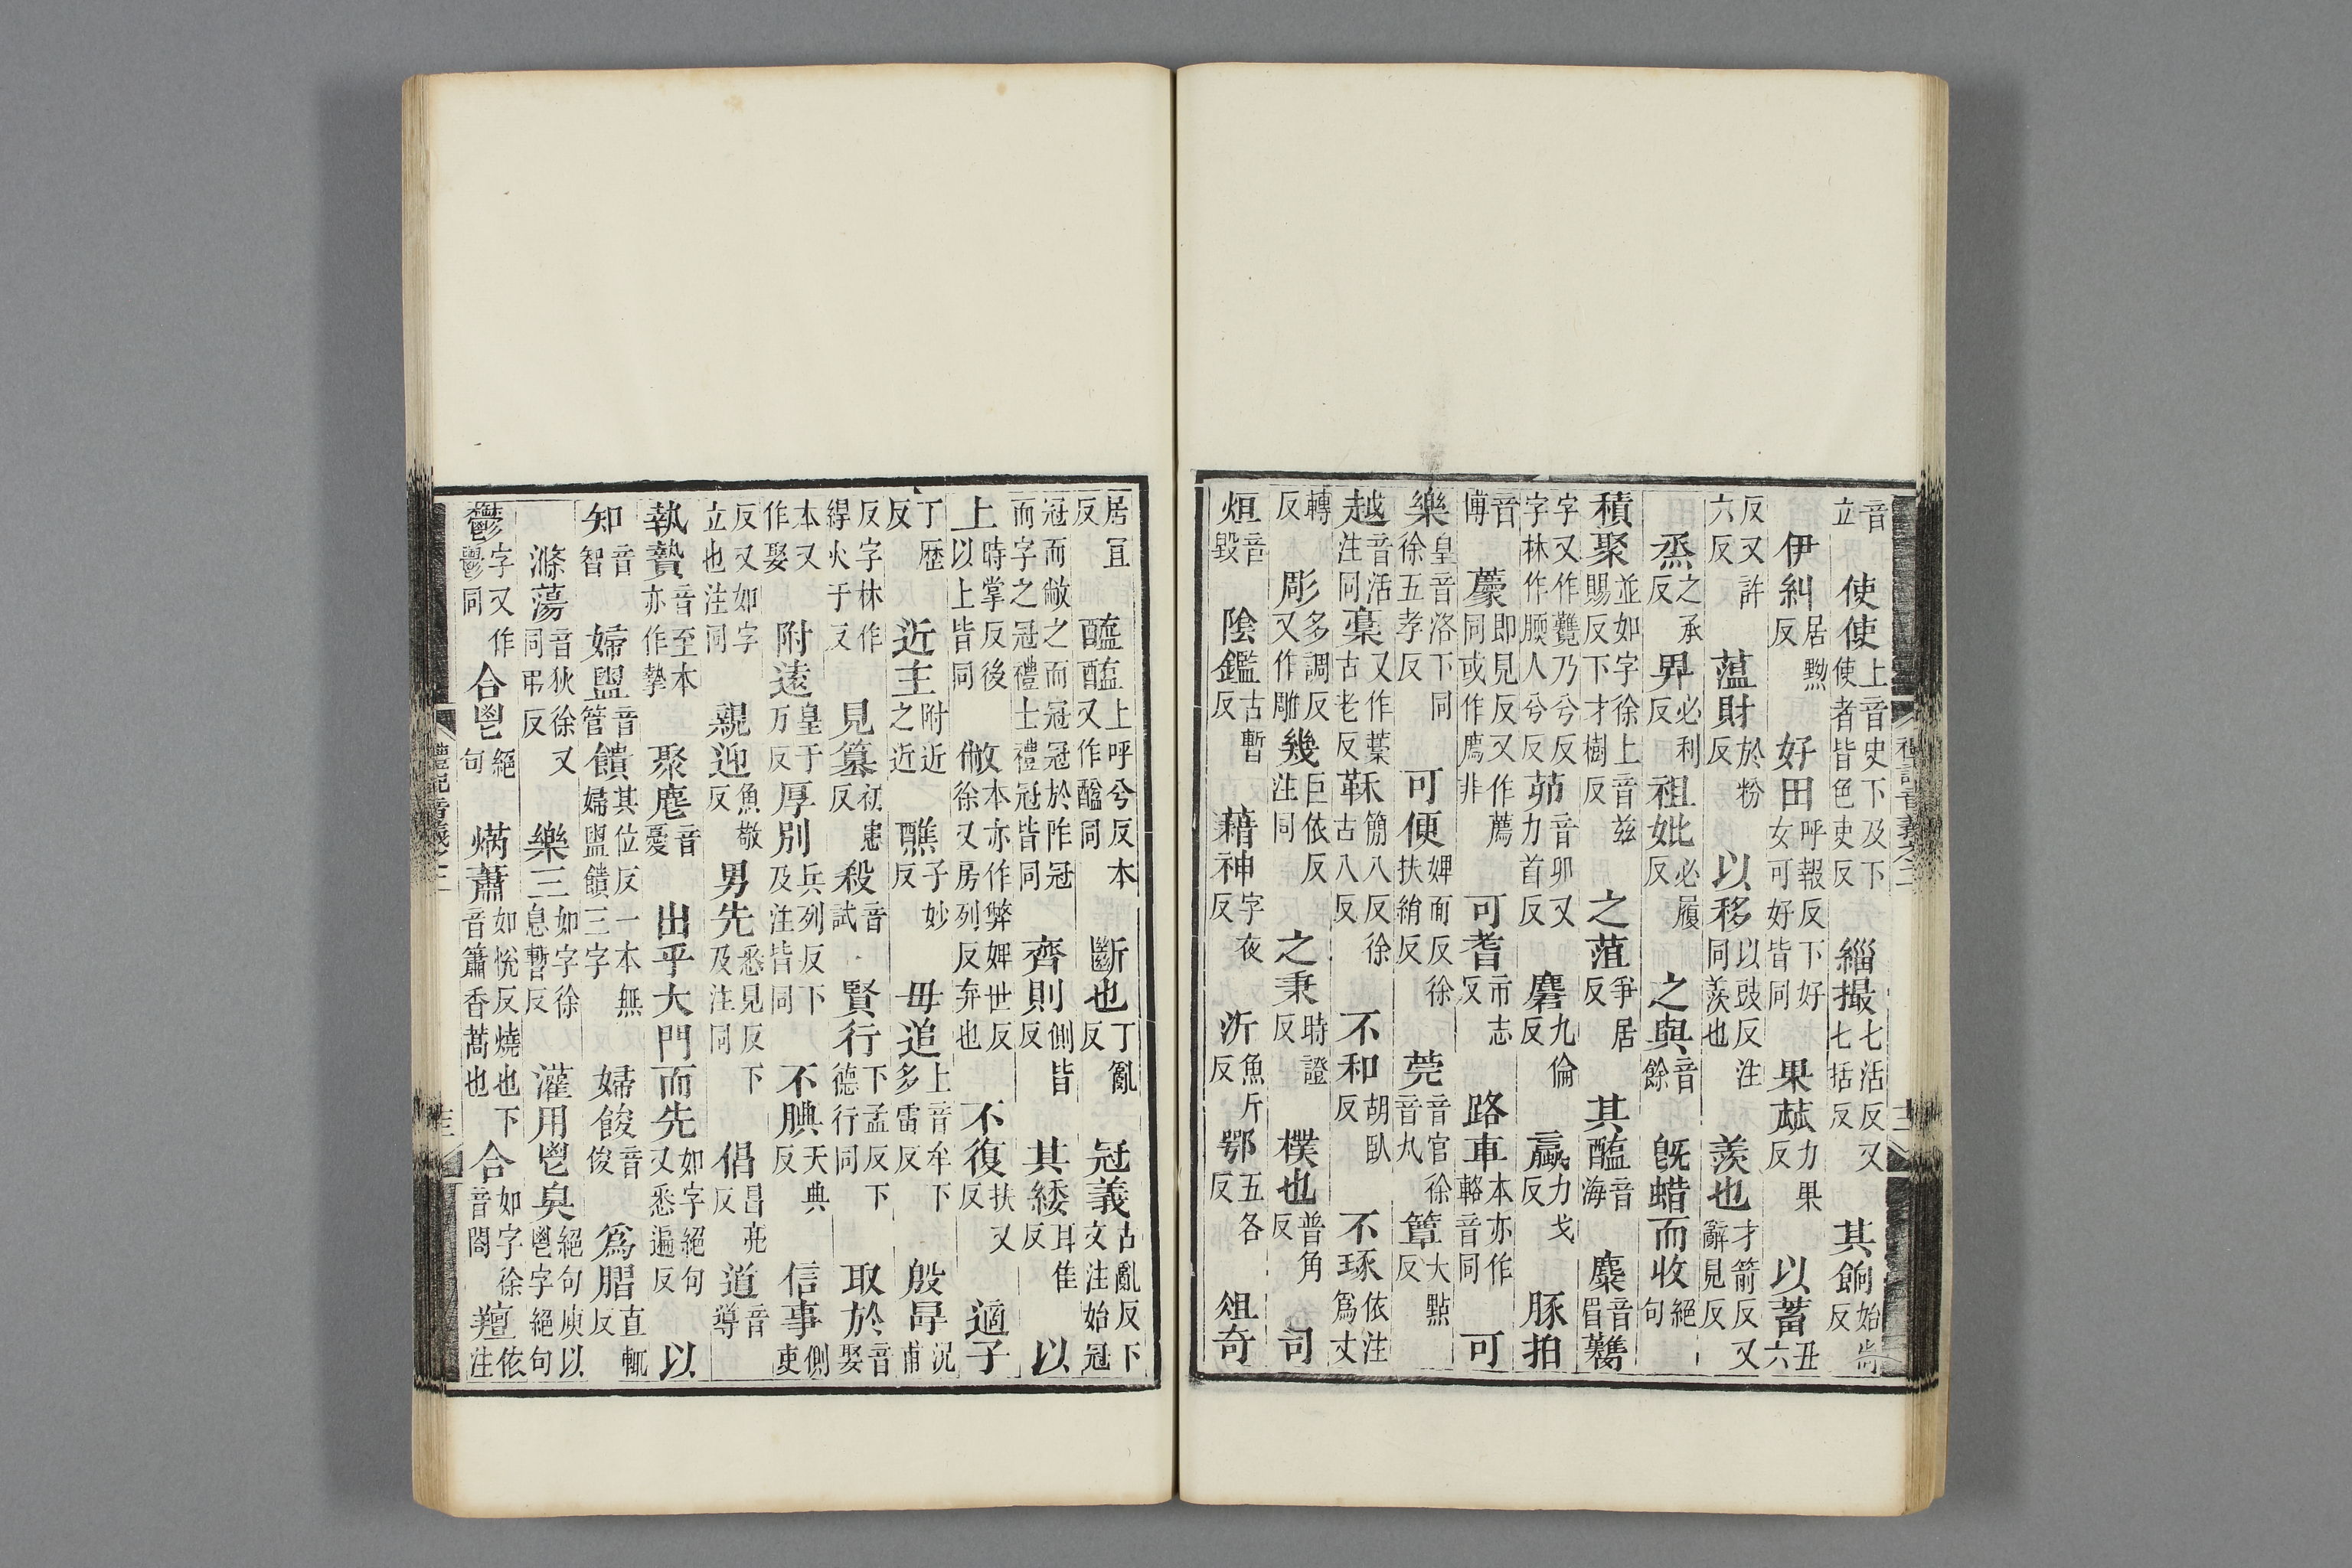 音立使使上音史下及下使者皆色吏反緇撮七活反又七括反其餉始尚反
伊糾居黝反好田呼報反下好女可好皆同果蓏力果反以蓄丑六
反又許六反薀財於粉反以移以豉反注同羨也羨也才箭反又辭見反
烝之承反畀必利反祖妣必履反之與音餘旣蜡而收絕句
積聚並如字徐上音兹賜反下才樹反之菹爭居反其醢音海麋音眉臡
字又作臡乃兮反字林作腝人兮反茆音卯又力首反麏九倫反蠃力戈反豚拍
音博即見反又作薦同或作廌非可耆市志反路車本亦作輅音同可
樂皇音洛下同徐五孝反可便婢面反徐扶絹反莞音官徐音丸簟大點反
越音活注同稾又作藁古老反鞂簡八反徐古八反不和胡臥反不琢依注爲丈
轉反彫多調反又作雕幾巨依反注同之秉時證反樸也普角反司
烜音毀陰鑑古暫反藉神字夜反沂魚斤反鄂五各反俎奇
居宜反醯醢上呼兮反本又作醯同斷也丁亂反冠義古亂反下文注始冠
冠而敝之而冠冠於阼冠而字之冠禮士禮冠皆同齊則側皆反其緌耳佳反以
上時掌反後以上皆同敝本亦作弊婢世反徐又房列反弃也不復扶又反適子
丁歷反近主附近之近醮子妙反毋追上音牟下多雷反殷冔況甫
反字林作火于反見篡初患反殺音試賢行下孟反下德行同取於音娶
本又作娶附遠皇于万反厚別兵列反下及注皆同不腆天典反信事側吏
反又如字立也注同親迎魚敬反男先悉見反下及注同倡昌亮反道音導
執贄音至本亦作摯聚麀音憂出乎大門而先如字絕句又悉遍反以
知音智婦盥音管饋其位反一本無婦盥饋三字婦餕音俊爲直輒反
滌蕩音狄徐又同弔反樂三如字徐息暫反灌用鬯臭絕句庾以鬯字絕句
鬱字又作鬱同合鬯絕句焫蕭如悅反燒也下音簫香蒿也合如字徐音閤羶依注
禮記音義之二